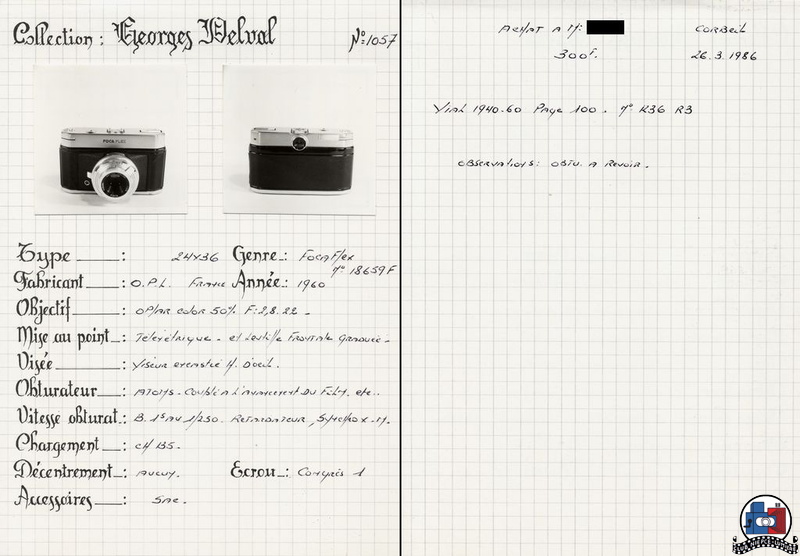 Collection : Georges Delval N° 1057
FOCAFLEX
Type : 24X36 Genre : FocaFlex
n° 18659F
Fabricant : O.P.L. France Année : 1960
Objectif : OPLAR COLOR 50% F:2,8.22 -
Mise au point : Télémétrique - et Lentille Frontale Graduée -
Visée : Viseur H. D'oeil.
Obturateur : ATOMS - Couplé A L'Avancement Du Film. etc..
Vitesse obturat. : B. 1s Au 1/250. Retardateur, Synchro X-M.
Chargement : CH 135 -
Décentrement : Aucun. Ecrou : Congrès 1
Accessoires : Sac.
ACHAT A M: CORBEIL
300F. 26.3.1986
Vial 1940-60 Page 100 - n° K36 R3
OBSERVATIONS : OBTU. A Revoir.